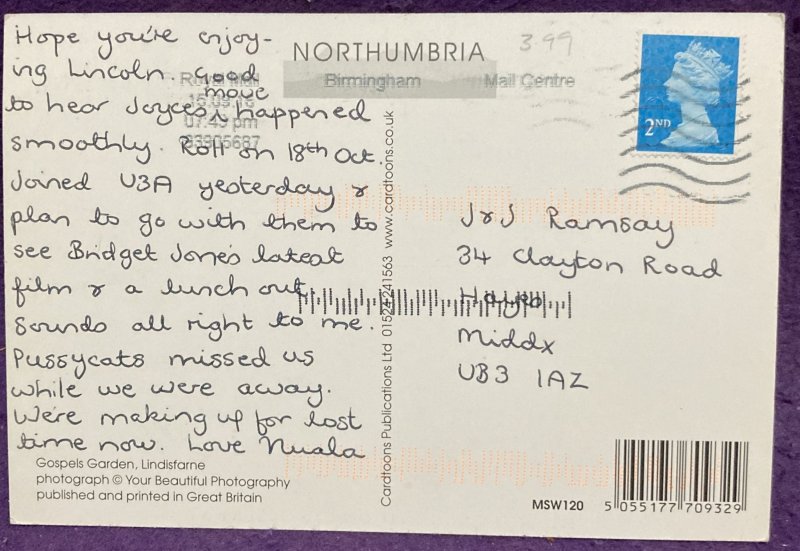 Hope you're enjoy-
ing Lincoln. Good
move
to hear Joyce's ʌ happened
smoothly. Roll on 18th Oct.
Joined U3A yesterday &
plan to go with them to
see Bridget Jones latest
film & a lunch out.
Sounds all right to me.
Pussycats missed us
while we were away.
We're making up for lost
time now. Love Nuala
Gospels Garden, Lindisfarne
photograph © Your Beautiful Photography
published and printed in Great Britain
NORTHUMBRIA
3.99
Royal Mail
Birmingham
Mail Centre
15.09.16
07:45 pm
33905687
2ND
Cardtoons Publications Ltd 01524 241563 www.cardtoons.co.uk
J & J Ramsay
34 Clayton Road
Hayes
Middx
UB3 1AZ
MSW120
5 055177 709329